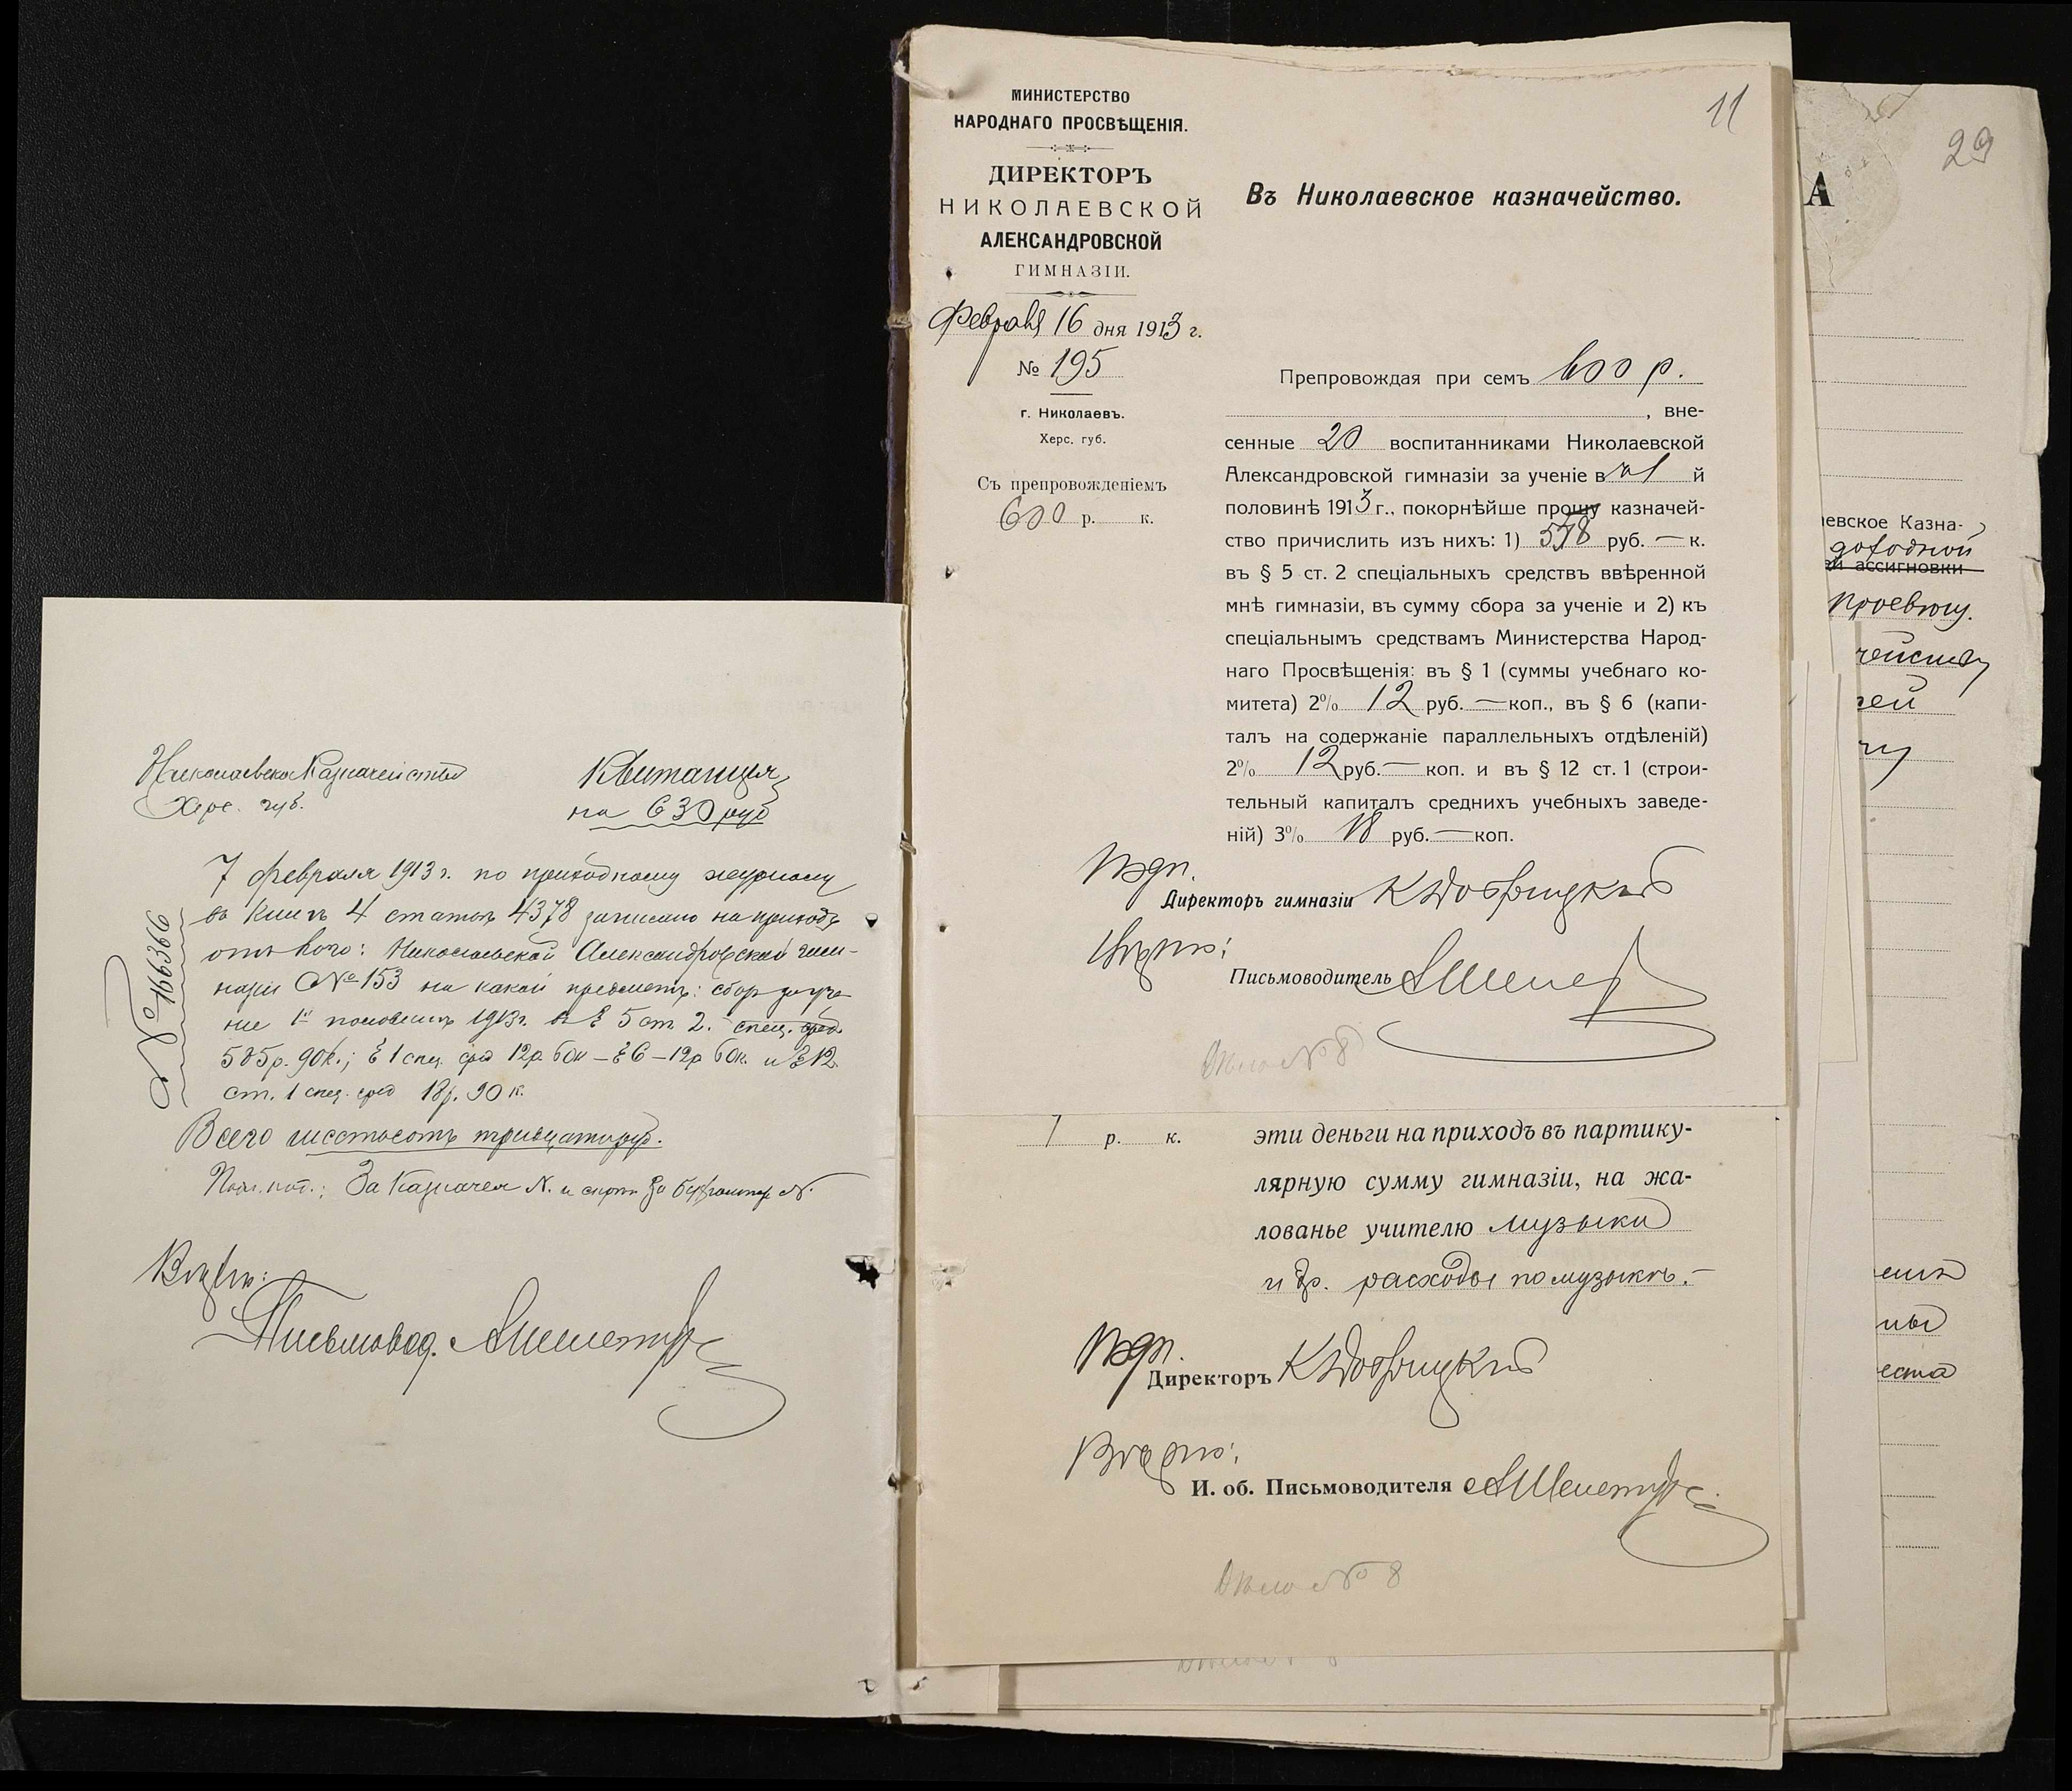 Николаевское Казначейство
Херс. губ.
Квитанция
на 630 руб
7 февраля 1913 г. по приходному журналу
въ книгѣ 4 статьи 4378 записано на приходъ
отъ кого: Николаевской Александровской гим-
назіи № 153 на какой предметъ: сборъ за уче
ние 1й половины 1913 г. въ § 5 ст. 2. спец. сред.
585 р. 90 к.; § 1 спец. сред 12 р. 60 к – § 6 – 12 р 60 к. и § 12
ст. 1 спец. сред 18 р. 90 к.
Всего шестьсотъ тридцать руб.
За Казначея N. и скрѣп. За бухгалтер N.
Вѣрно:
Письмовод. АШелет
№ 166366
МИНИСТЕРСТВО
НАРОДНАГО ПРОСВѢЩЕНІЯ.
ДИРЕКТОРЪ
НИКОЛАЕВСКОЙ
АЛЕКСАНДРОВСКОЙ
ГИМНАЗІИ.
Февраля 16 дня 1913 г.
№ 195
г. Николаевъ.
Херс. губ.
Съ препровожденіемъ
600 р. к.
11
Въ Николаевское казначейство.
Препровождая при семъ 600 р.
, вне-
сенные 20 воспитанниками Николаевской
Александровской гимназіи за ученіе въ 1 й
половинѣ 1913 г., покорнѣйше прошу казначей-
ство причислить изъ нихъ: 1) 558 руб. — к.
въ § 5 ст. 2 спеціальныхъ средствъ ввѣренной
мнѣ гимназіи, въ сумму сбора за ученіе и 2) къ
спеціальнымъ средствамъ Министерства Народ-
наго Просвѣщенія: въ § 1 (суммы учебнаго ко-
митета) 2% 12 руб. — коп., въ § 6 (капи-
талъ на содержаніе параллельныхъ отдѣленій)
2% 12 руб. — коп. и въ § 12 ст. 1 (строи-
тельный капиталъ среднихъ учебныхъ заведе-
ній) 3% 18 руб. — коп.
Подп.
Директоръ гимназіи
Вѣрно:
Письмоводитель
Дѣло № 8
р. к.
эти деньги на приходъ въ партику-
лярную сумму гимназіи, на жа-
лованье учителю музыки
и др. расходы по музыкѣ. –
Подп.
Директоръ
Вѣрно:
И. об. Письмоводителя
Дѣло № 8
29
А
евское Казна-
доходной
ассигновки
ей